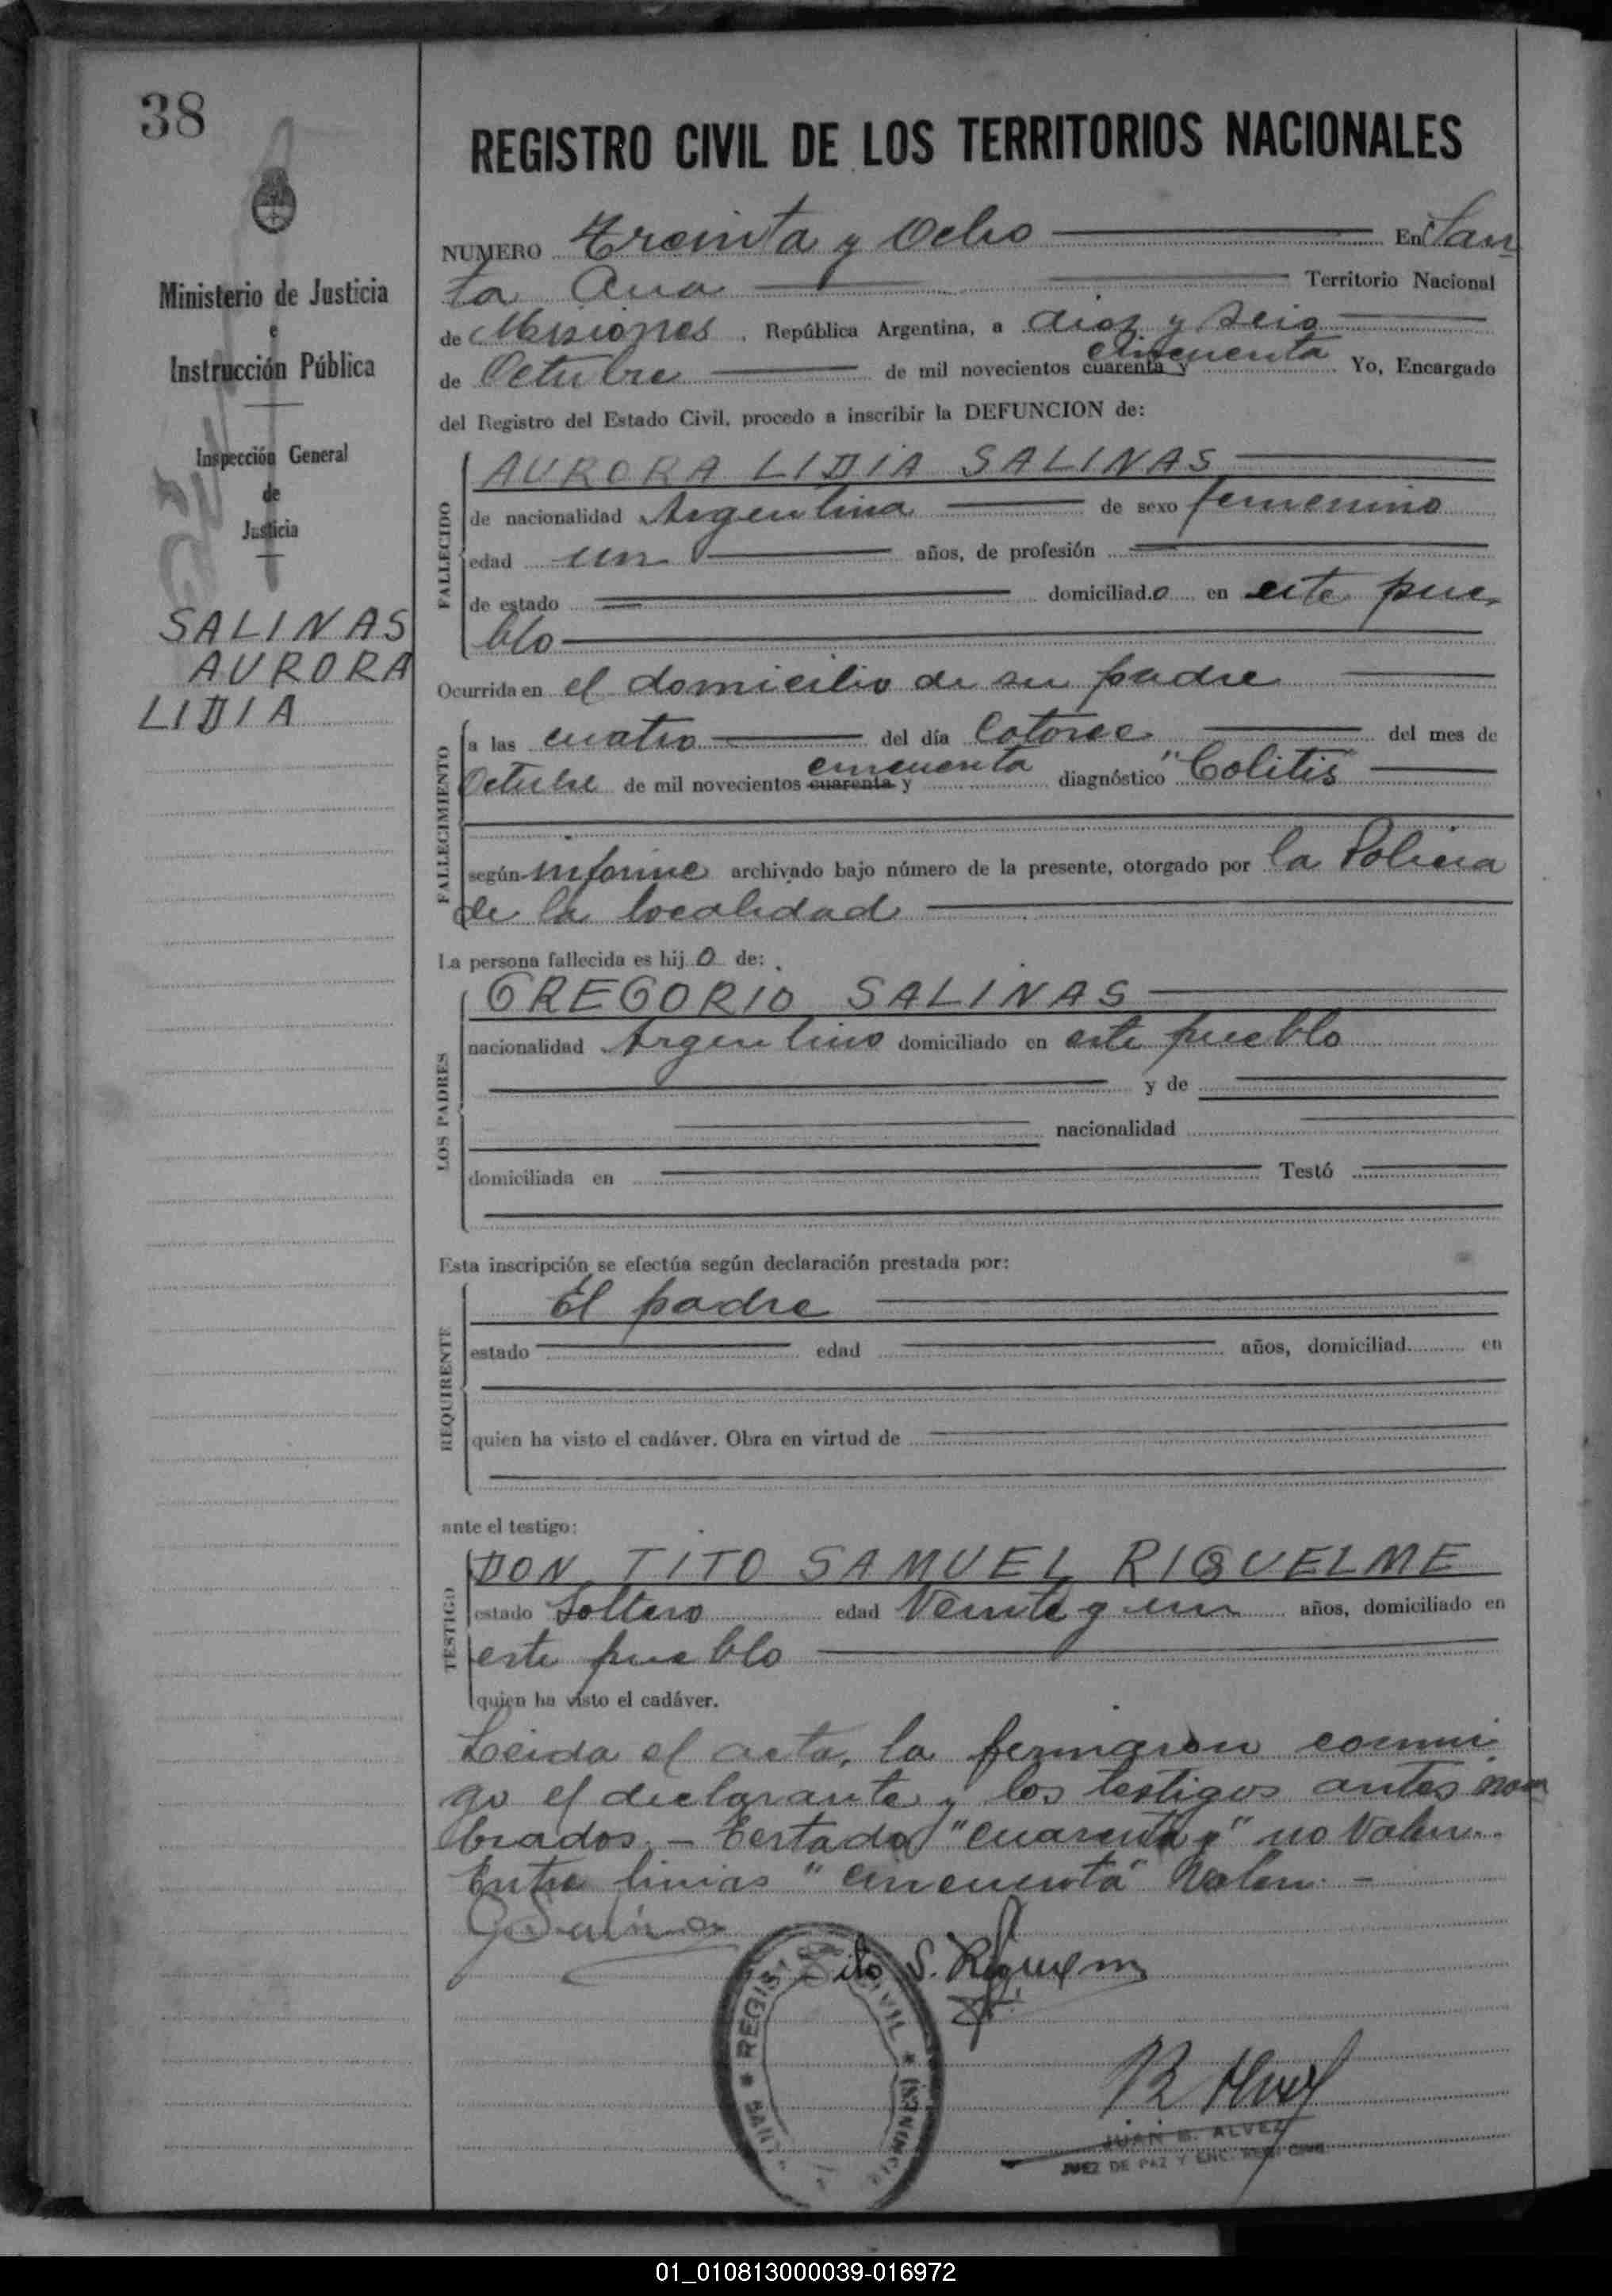 38
Ministerio de Justicia
e
Instrucción Pública
Inspección General
de
Justicia
SALINAS
AURORA
LIDIA
REGISTRO CIVIL DE LOS TERRITORIOS NACIONALES
NUMERO Treinta y Ocho En San
ta Ana Territorio Nacional
de Misiones, República Argentina, a diez y seis
cincuenta
de Octubre de mil novecientos cuarenta y Yo, Encargado
del Registro del Estado Civil, procedo a inscribir la DEFUNCION de:
FALLECIDO
AURORA LIDIA SALINAS
de nacionalidad Argentina de sexo femenino
edad un años, de profesión
de estado domiciliado en este pue
blo
Ocurrida en el domicilio de su padre
FALLECIMIENTO
a las cuatro del día Catorce del mes de
cincuenta
Octubre de mil novecientos cuarenta y diagnóstico "Colitis"
según informe archivado bajo número de la presente, otorgado por la Policia
de la localidad
La persona fallecida es hijo de:
LOS PADRES
GREGORIO SALINAS
nacionalidad Argentino domiciliado en este pueblo
y de
nacionalidad
domiciliada en Testó
Esta inscripción se efectúa según declaración prestada por:
REQUIRENTE
El padre
estado edad años, domiciliad en
quien ha visto el cadáver. Obra en virtud de
ante el testigo:
TESTIGO
DON TITO SAMUEL RIQUELME
estado Soltero edad Veinte y un años, domiciliado en
este pueblo
quien ha visto el cadáver.
Leida el acta, la firmaron conmi
go el declarante y los testigos antes nom
brados. - Testado "cuarenta y" no Valen.
Entre linias "cincuenta" Valen. -
REGISTRO CIVIL * (SANTA
Tito S. Riquelm
JUAN B. ALVEZ
JUEZ DE PAZ Y ENC. REG. CIVIL
01_010813000039-016972